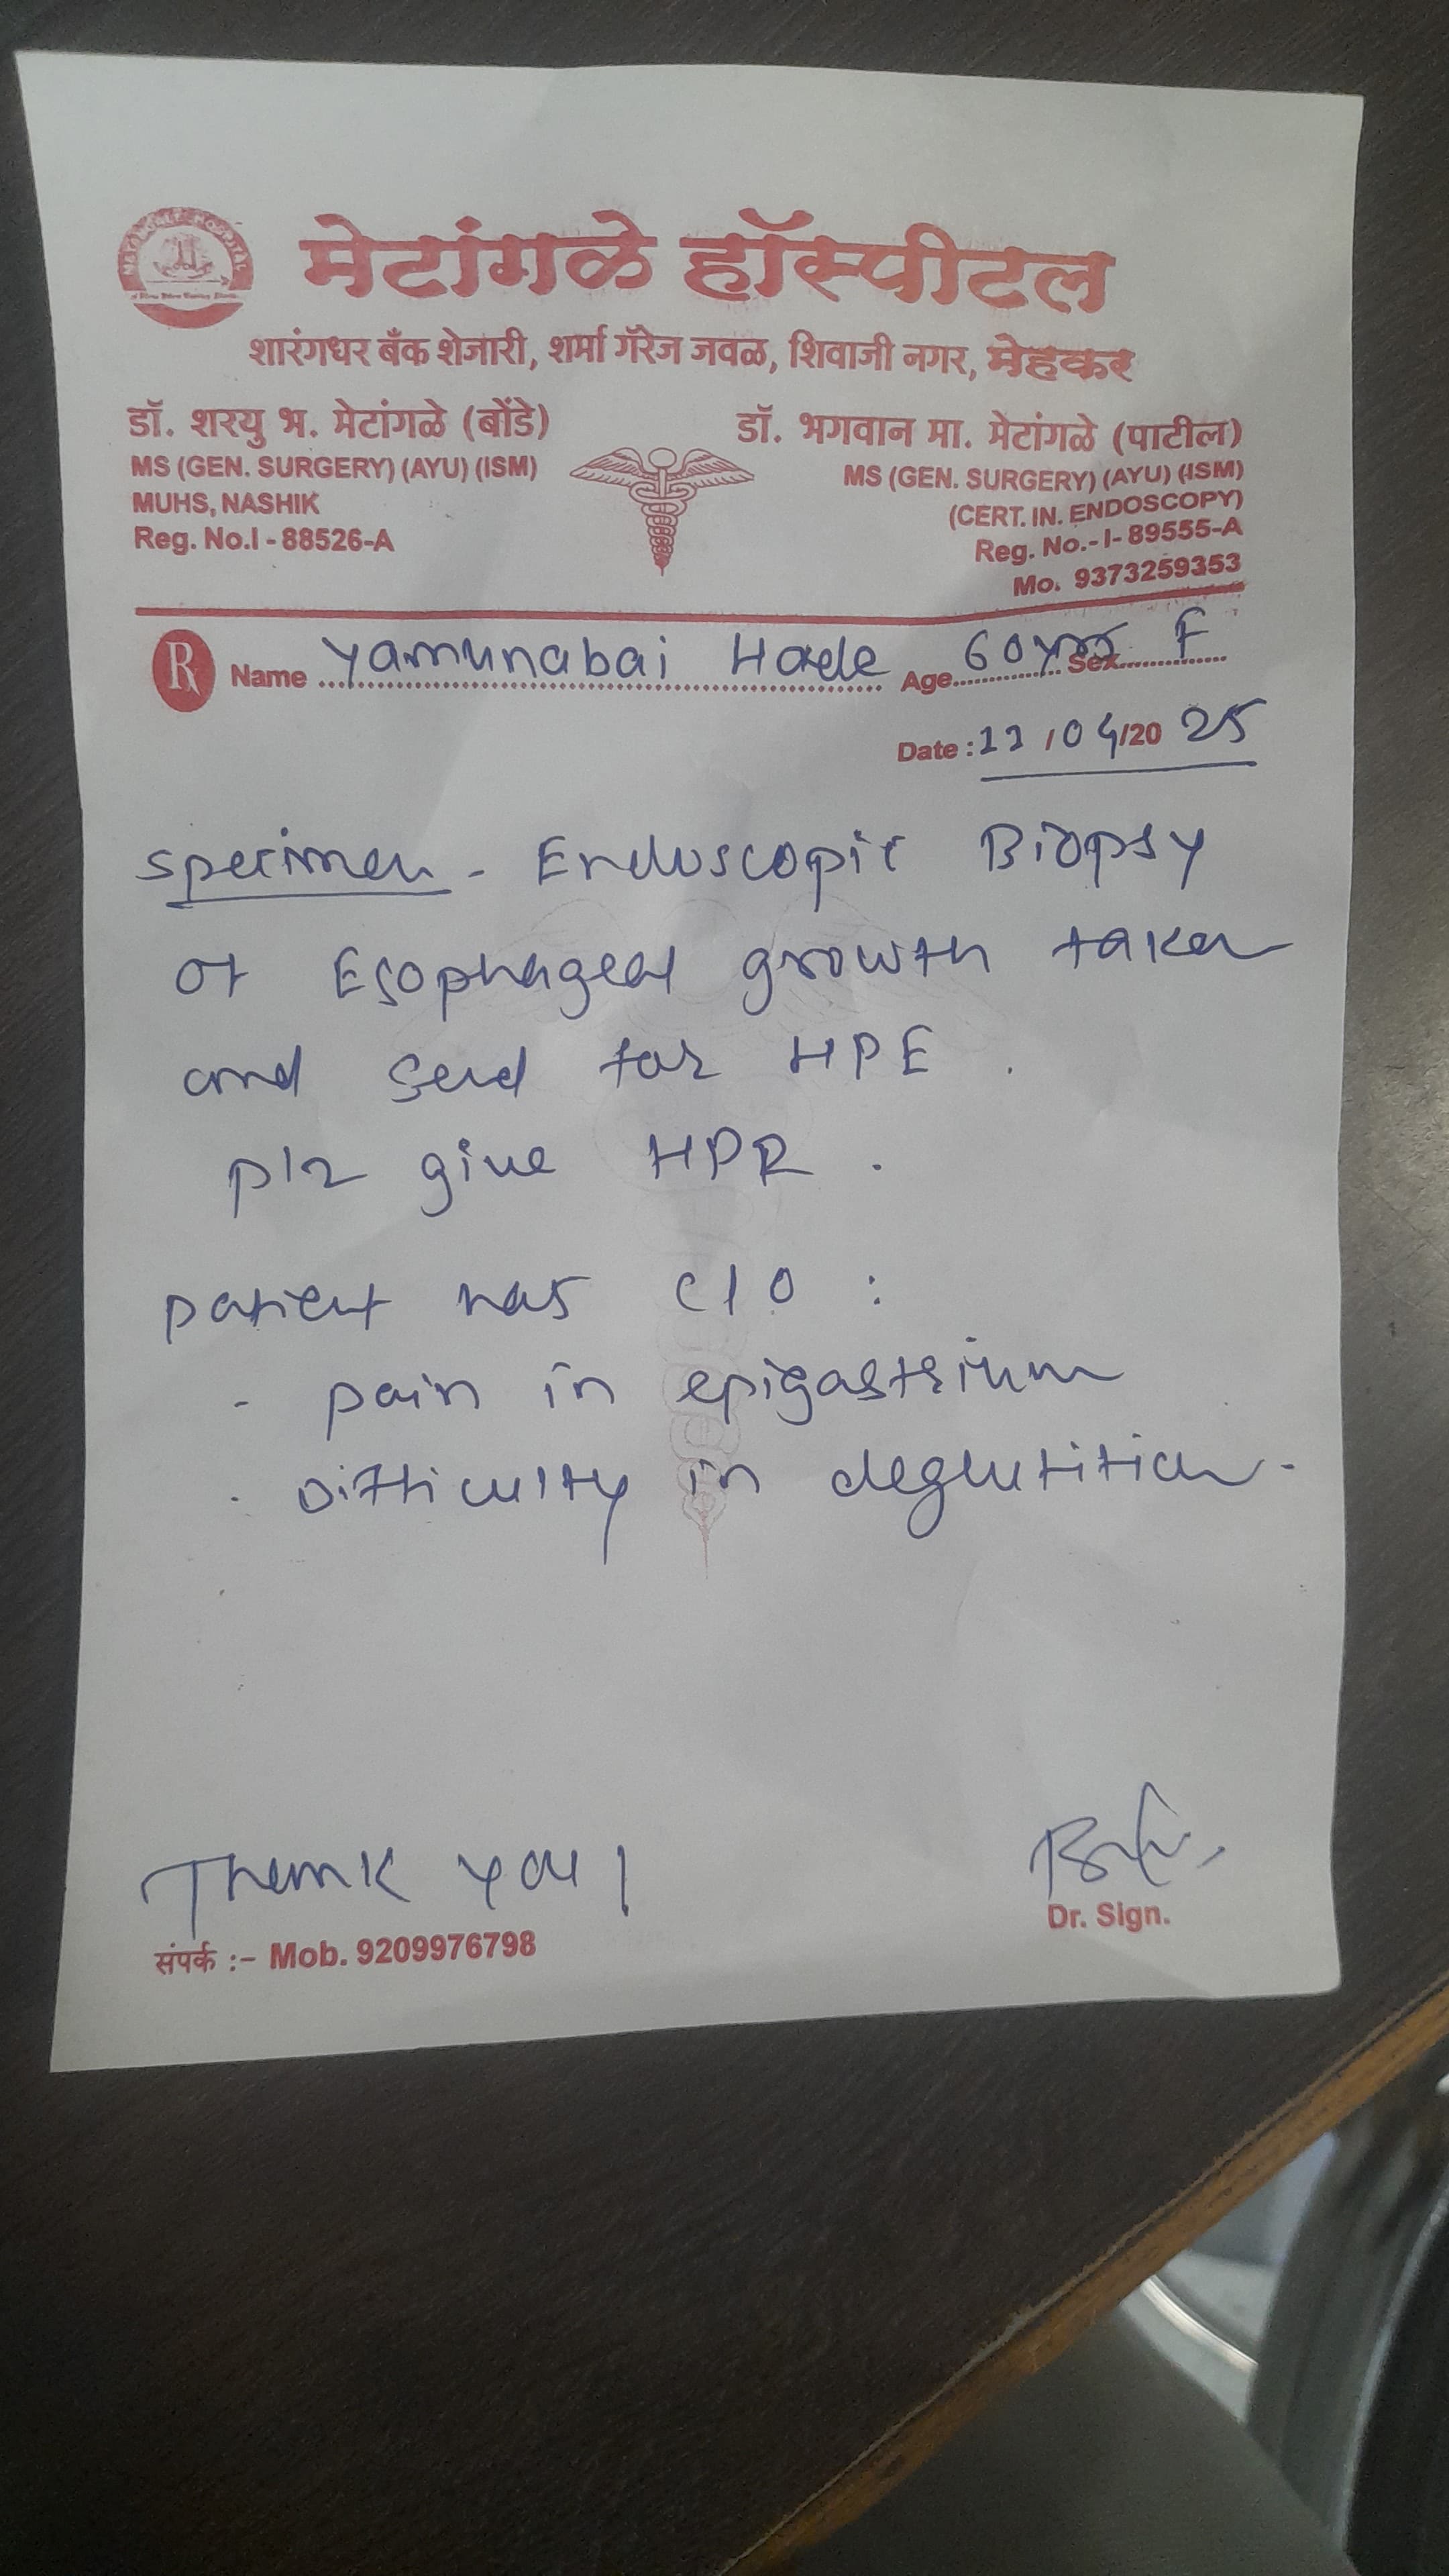 मेटांगळे हॉस्पीटल
शारंगधर बँक शेजारी, शर्मा गॅरेज जवळ, शिवाजी नगर, मेहकर
डॉ. शरयु भ. मेटांगळे (बोंडे)
MS (GEN. SURGERY) (AYU) (ISM)
MUHS, NASHIK
Reg. No.I - 88526-A
डॉ. भगवान मा. मेटांगळे (पाटील)
MS (GEN. SURGERY) (AYU) (ISM)
(CERT. IN. ENDOSCOPY)
Reg. No.- I- 89555-A
Mo. 9373259353
R Name Yamunabai Hade Age 60yrs Sex F
Date : /04/20 25
specimen - Endoscopic Biopsy
of Esophageal growth taken
and send for HPE .
plz give HPR .
patient has C/O :
- pain in epigastrium
- Difficulty in deglutition -
Thank you !
Dr. Sign.
संपर्क :- Mob. 9209976798